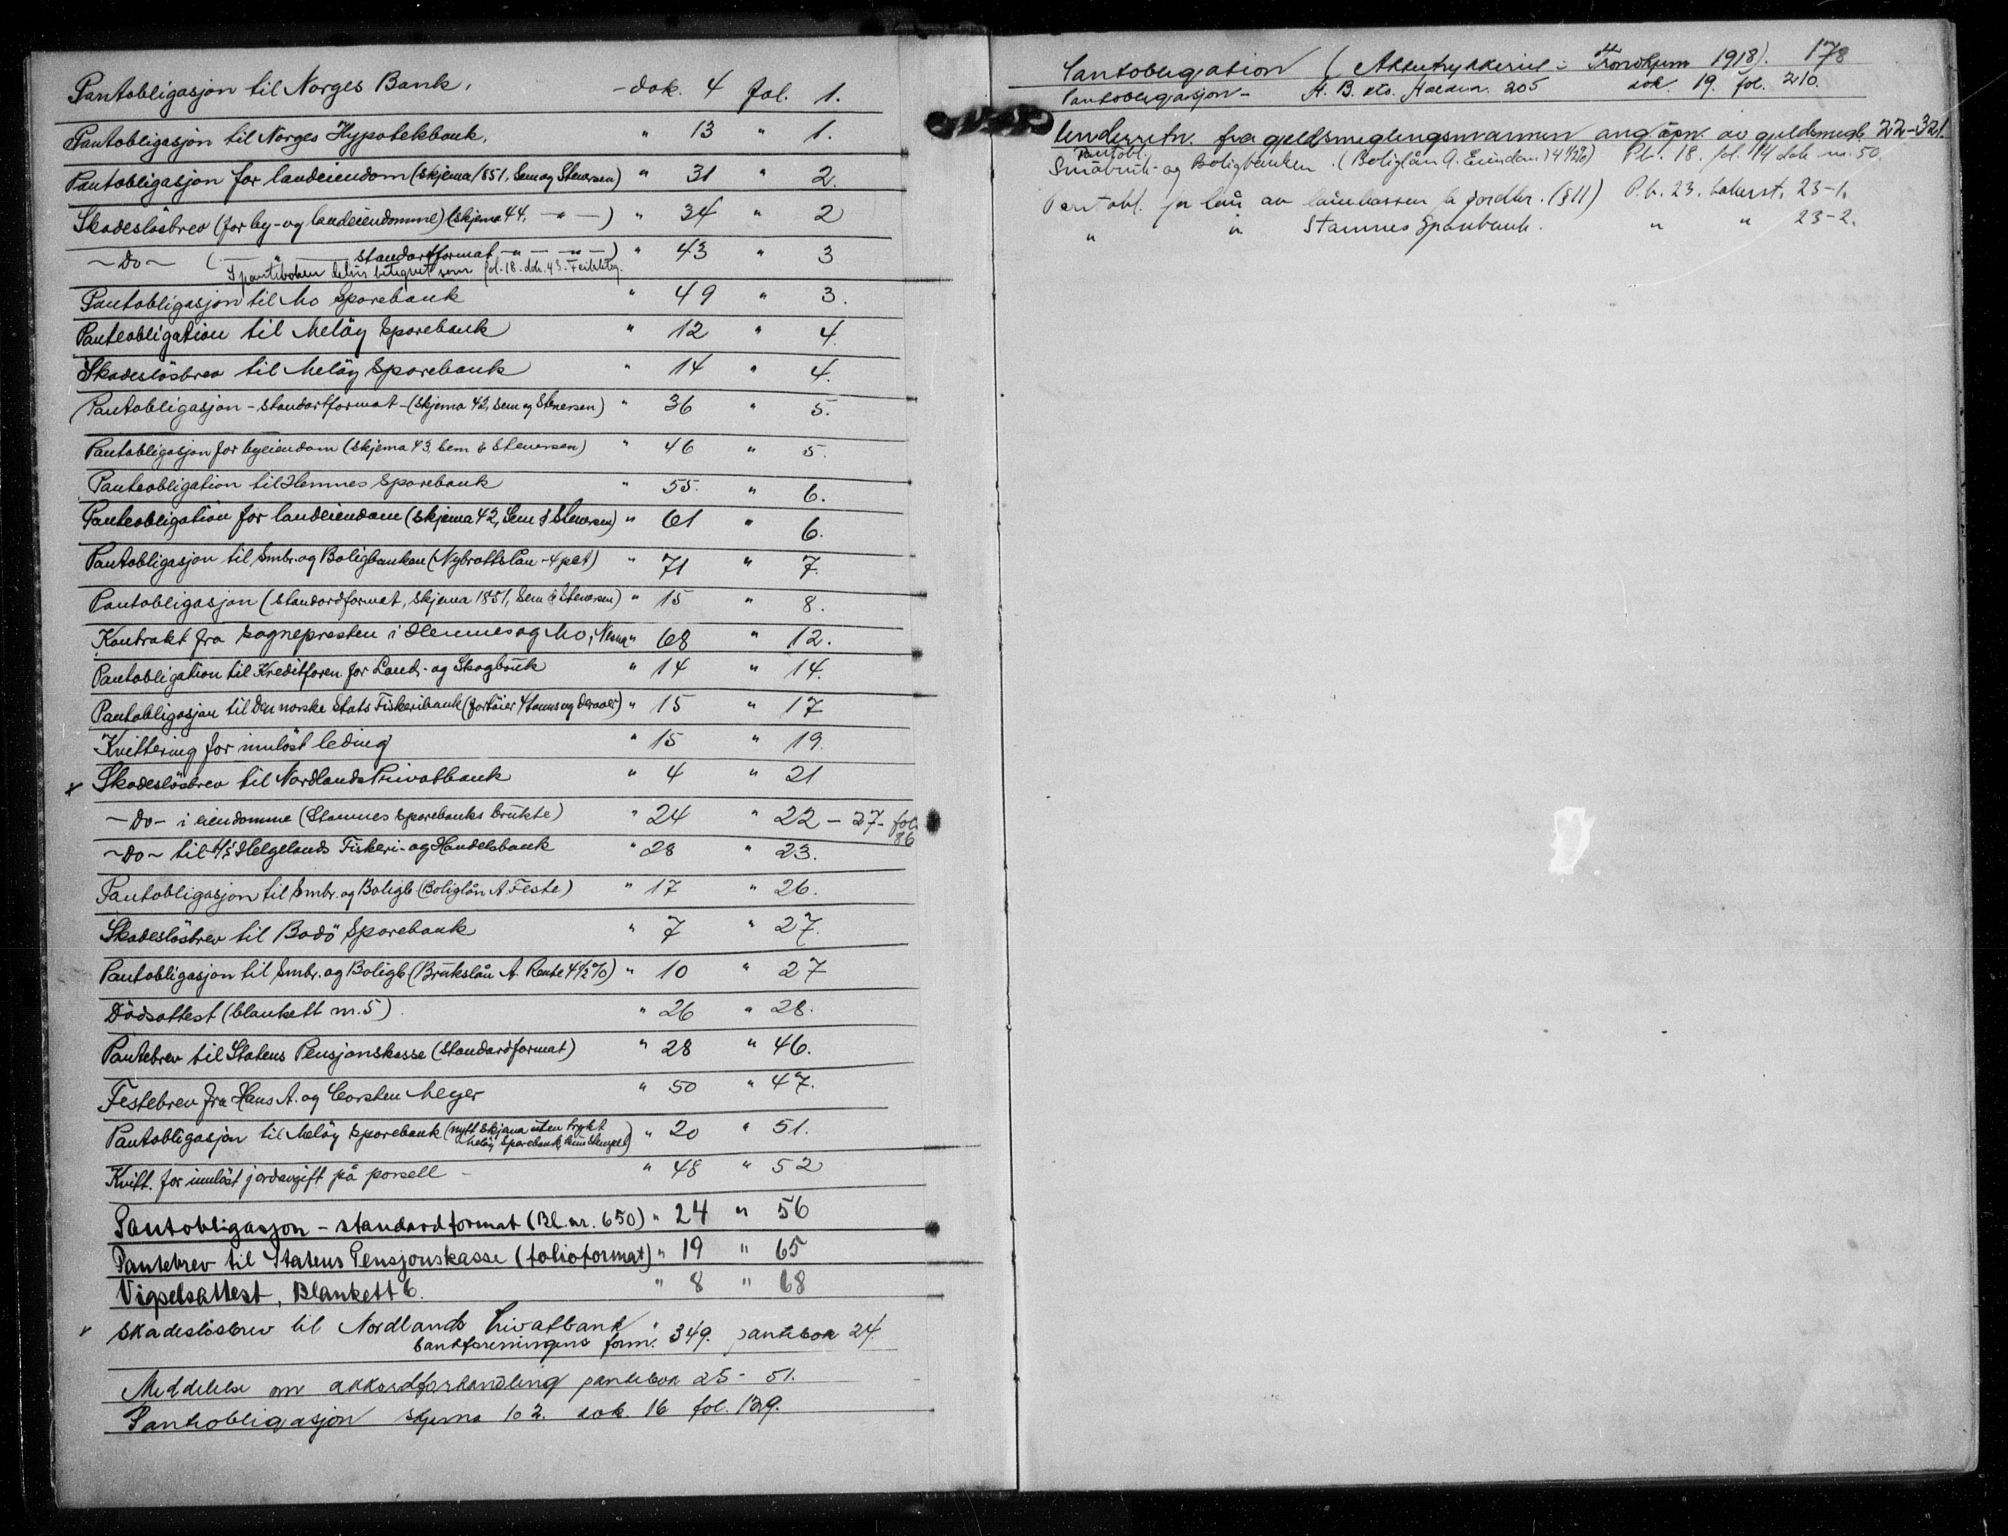 Pantobligasjon til Norges Bank, - dok. 4 fol. 1.
Pantobligasjon til Norges Hypotekbank. " 13 " 1.
Pantobligasjon for landeiendom (skjema 1851, Sem og Stenersen) " 31 " 2.
Skadesløsbrev (for by- og landeiendomme) (skjema 44. -"-) " 34 " 2
-Do- (-"- standartformat -"- -"-) " 43 " 3
I pantboken delvis betegnet som fol. 18. dok. 43.
Pantobligasjon til Mo Sparebank " 49 " 3.
Panteobligation til Meløy Sparebank " 12 " 4.
Skadesløsbrev til Meløy Sparebank " 14 " 4.
Pantobligasjon - standartformat - (skjema 42, Sem og Stenersen) " 36 " 5.
Pantobligasjon for byeiendom (skjema 43, Sem & Stenersen) " 46 " 5.
Panteobligation til Hemnes Sparebank " 55. " 6.
Panteobligation for landeiendom (skjema 42, Sem & Stenersen) " 61 " 6.
Pantobligasjon til Smbr. og Boligbanken (Nybrottslån - 4 pct) " 71 " 7.
Pantobligasjon (standardformat, skjema 1851, Sem & Stenersen) " 15 " 8.
Kontrakt fra sognepresten i Hemnes og Mo, Nesna " 68 " 12.
Pantobligation til Kreditforen. for Land- og Skogbruk " 14 " 14.
Pantobligasjon til Den norske Stats Fiskeribank (fartøier 4 tonns og derover) " 15 " 17
Kvittering for innløst leding " 15 " 19.
x Skadesløsbrev til Nordlands Privatbank " 4 " 21
-Do- i eiendomme (Stamnes Sparebanks brukte) " 24 " 22 - 27- fol. 86
-Do- til A/S Helgelands Fiskeri- og Handelsbank " 28 " 23.
Pantobligasjon til Smbr. og Boligb (Boliglån A. Feste) " 17 " 26.
Skadesløsbrev til Bodø Sparebank " 7 " 27.
Pantobligasjon til Smbr. og Boligb (Brukslån A. Rente 4½%) " 10 " 27
Dødsattest (blankett nr. 5). " 26 " 28.
Pantebrev til Statens Pensjonskasse (standardformat) " 28 " 46.
Festebrev fra Hans A. og Corsten Meyer " 50 " 47.
Pantobligasjon til Meløy Sparebank (nytt skjema uten trykt Meløy Sparebank, kun stempel) " 20 " 51.
Kvitt. for innløst jordavgift på parsell - " 48 " 52
Pantobligasjon - standardformat (Bl. nr. 650) " 24 " 56
Pantebrev til Statens Pensjonskasse (folioformat) " 19 " 65
Vigselsattest, Blankett 6. " 8 " 68
x Skadesløsbrev til Nordlands Privatbank
bankforeningens form. " 349. pantebok 24.
Meddelelse om akkordforhandling pantebok 25 - 51.
Pantobligasjon skjema 102. dok. 16 fol. 139.
Pantobligation (Aktietrykkeriet i Trondhjem 1918). 178
Pantobligasjon - H. B. Halden. 205 dok. 19. fol. 210.
Underretn. fra gjeldsmeglingsmannen ang åpn. av gjeldsmegl. 22-321
Pantobl. Småbruk- og Boligbanken. (Boliglån A. Eiendom) 4½%) Pb. 18. fol. 14 dok nr. 50.
Pantobl. for lån av lånekassen for jordbr. (§ 11) P.b. 23. 23-1.
" " Stamnes Sparebank. " " 23-2.